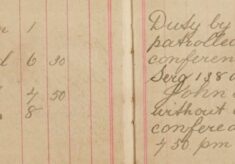 n 1
d 6 30
4 50
8
Duty by
patrolled
conferen
Serg 138 d
John
without
confered
4 50 pm